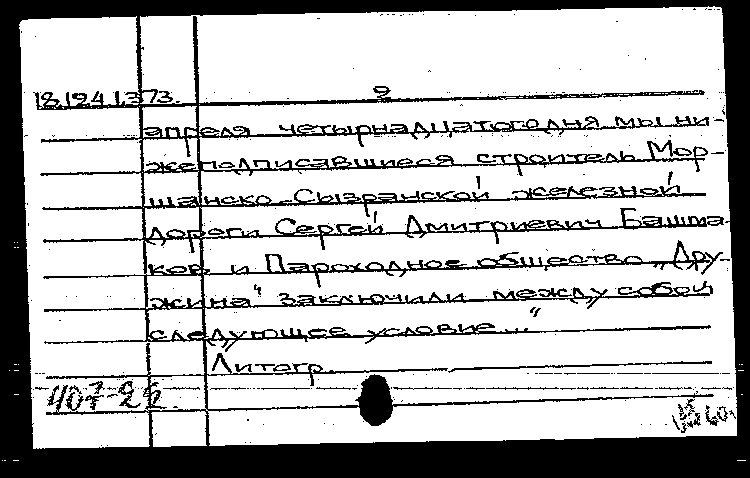 18.124.1.373.
2
апреля четырнадцатого дня мы ни-
жеподписавшиеся строитель Мор-
шанско-Сызранской железной
дороги Сергей Дмитриевич Башма-
ков и Пароходное общество „Дру-
жина" заключили между собой
следующее условие..."
Литогр.
407-25.